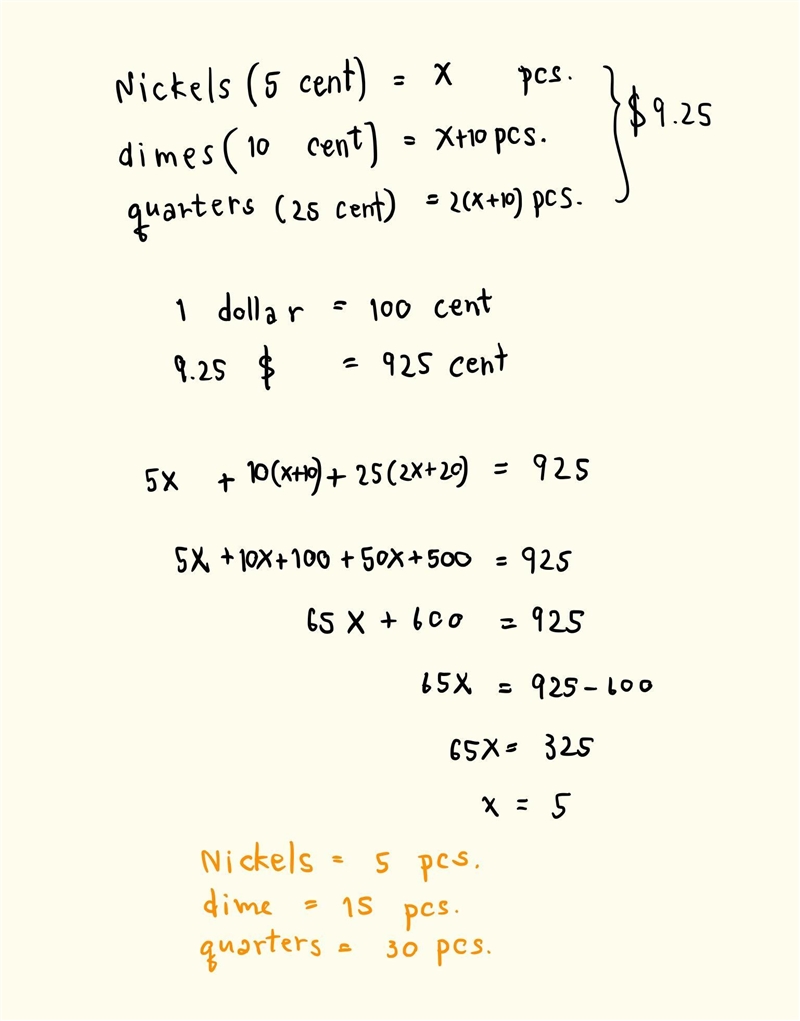 Nickels (5 cent) = x pcs.
dimes (10 cent) = x+10 pcs.
$9.25
quarters (25 cent) = 2(x+10) pcs.
1 dollar = 100 cent
9.25 $ = 925 cent
5x + 10(x+10) + 25(2x+20) = 925
5x + 10x + 100 + 50x + 500 = 925
65x + 600 = 925
65x = 925 - 600
65x = 325
x = 5
Nickels = 5 pcs.
dime = 15 pcs.
quarters = 30 pcs.